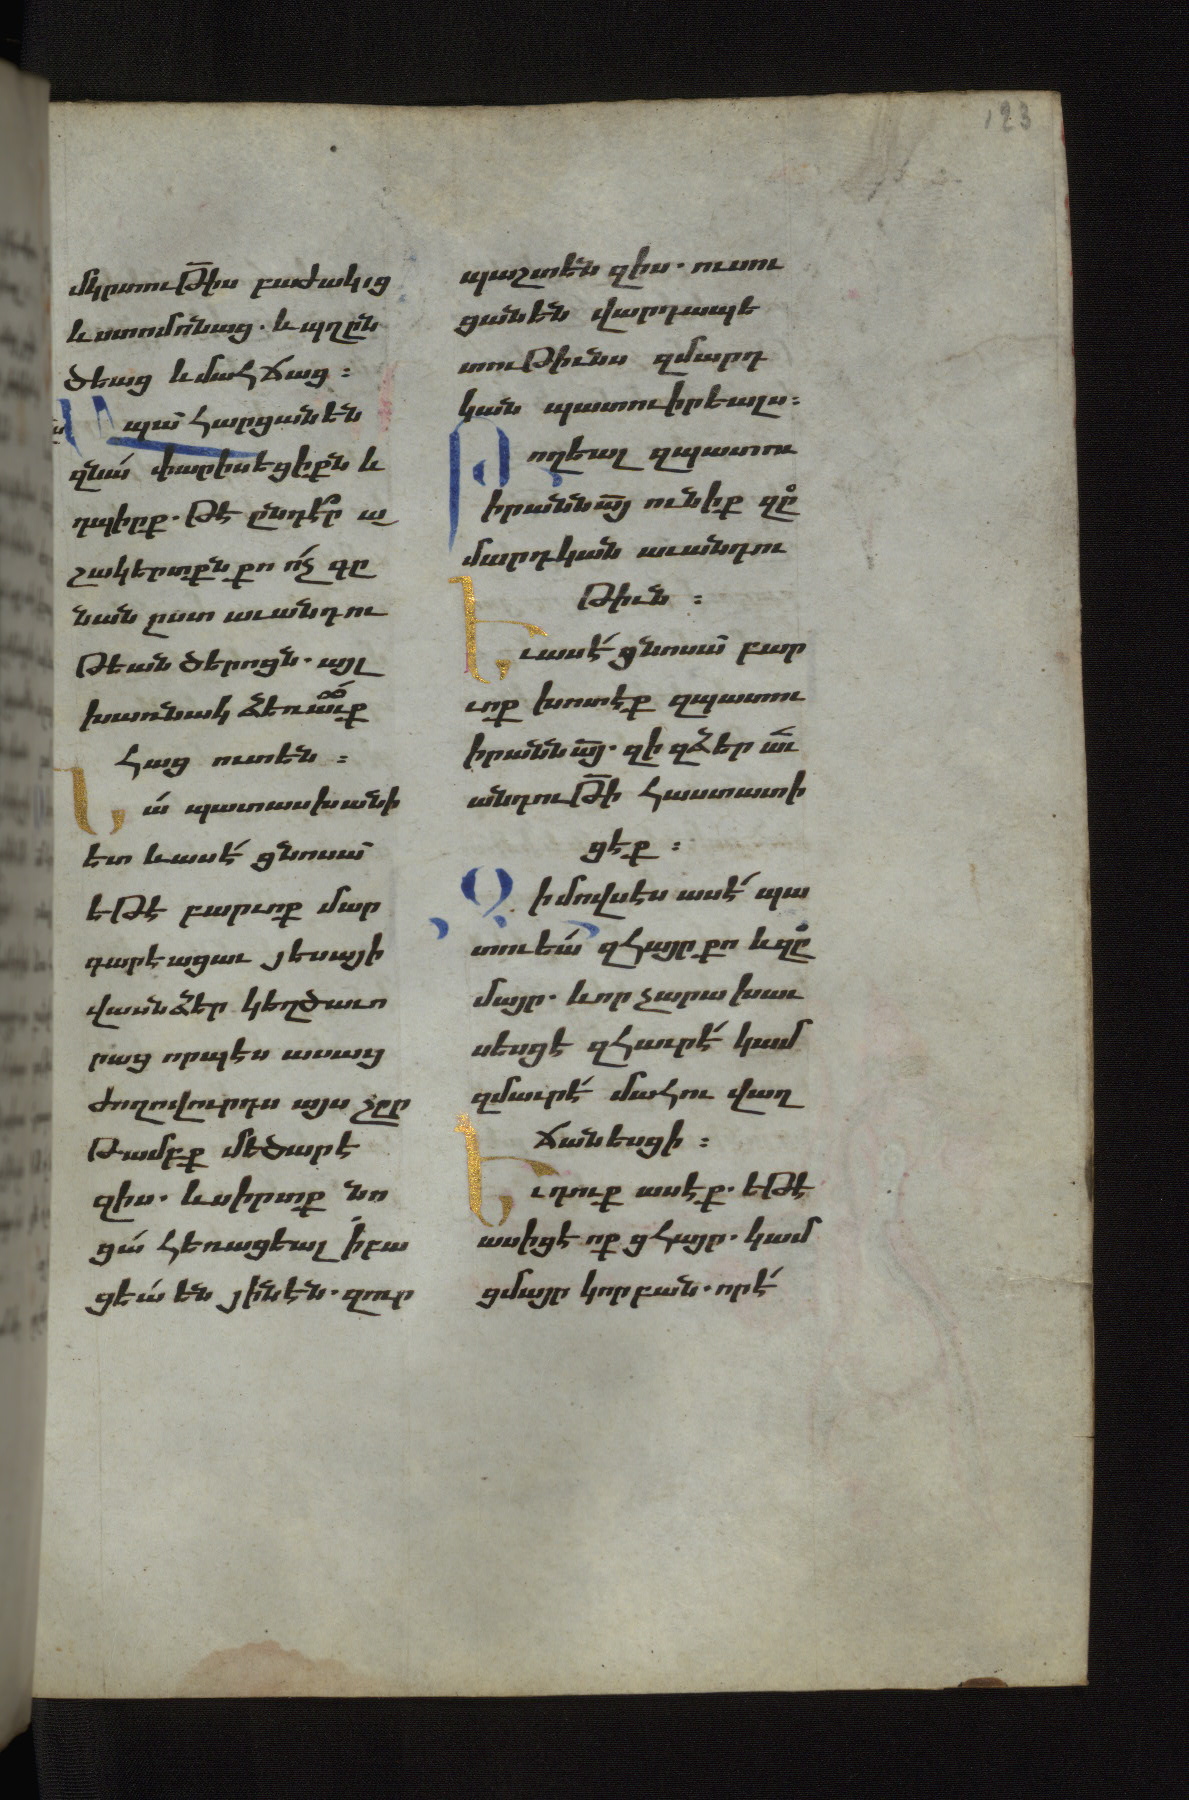 123
մկրտու֊Թիս բաժակաց
և ստոմոնաց. և պղըն
ծեաց և մահճաց :
Ապա հարցանեն
զնա փարիսեցիքն և
դպիրք. թէ ընդէր ա
շակերտքն քո ոչ գը
նան ըստ աւանդու
թեան ծերոցն. այլ
խառնակ ձեռաւք
հաց ուտեն :
Նա պատասխանի
ետ և ասէ ցնոսա
եթէ բարւոք մար
գարէացաւ յեսայի
վասն ձեր կեղծաւո
րաց որպէս ասաց
ժողովուրդս այս շըր
թամբք մեծարէ
զիս. և սիրտք նո
ցա հեռացեալ ի բա
ցեա են յինէն. զուր
պաշտեն զիս. ուսու
ցանեն վարդապե
տութիւնս զմարդ
կան պատուիրեալս :
Թողեալ զպատու
իրանն այ ունիք զը
մարդկան աւանդու
թիւն :
Եւ ասէ ցնոսա բար
ւոք խոտէք զպատու
իրանն այ. զի զձեր աւ
անդութի հաստատի
ցէք :
Զի մովսէս ասէ պա
տուեա զհայր քո և զը
մայր. և որ չարախաւ
սեսցէ զհաւրէ կամ
զմաւրէ մահու վաղ
ճանեսցի :
Եւ դուք ասէք. եթէ
ասիցէ ոք ցհայր. կամ
ցմայր կորբան. որ է